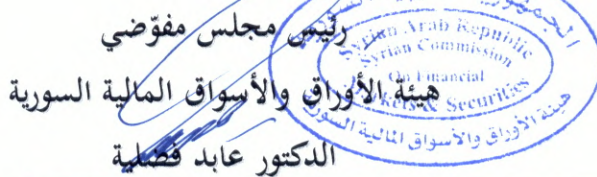 رئيس مجلس مفوّضي
هيئة الأوراق والأسواق المالية السورية
الدكتور عابد فضلية
Syrian Arab Republic
Syrian Commission
On Financial
Markets & Securities
هيئة الأوراق والأسواق المالية السورية